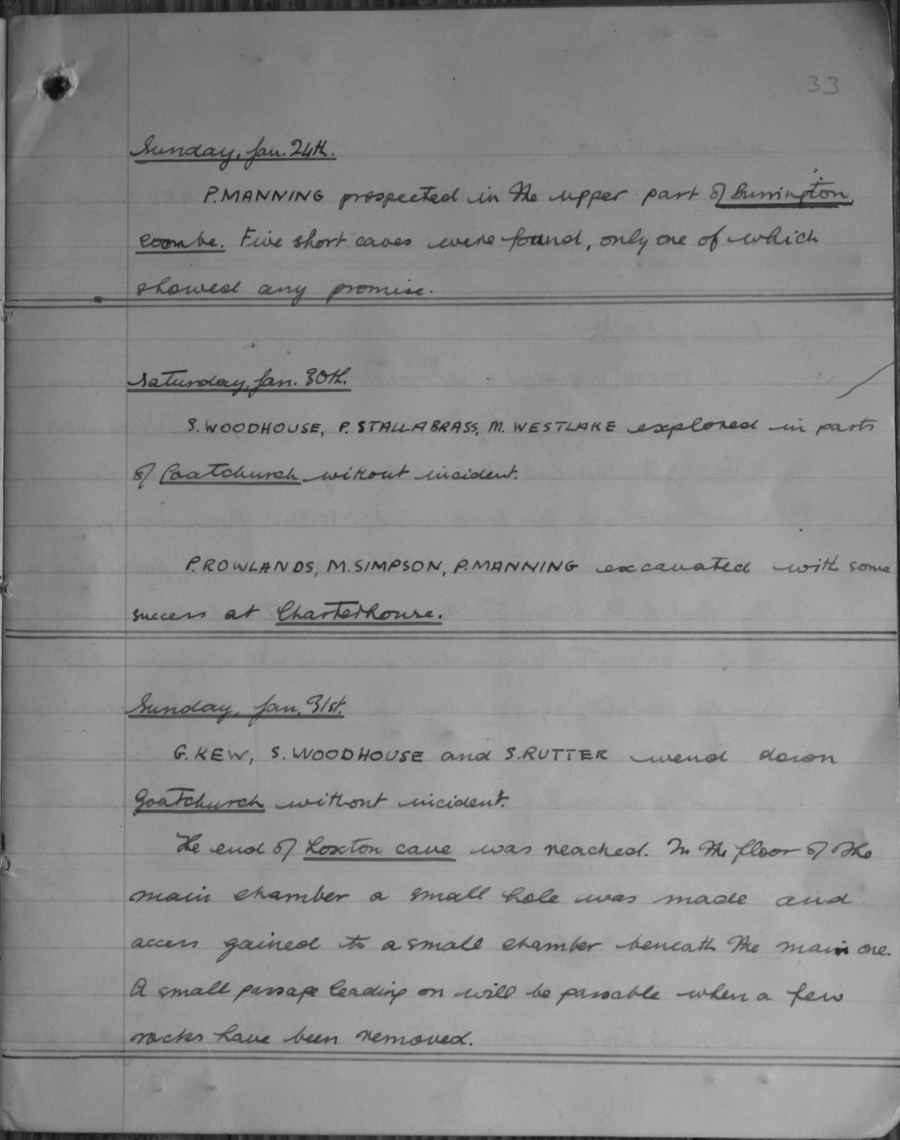 33
Sunday, Jan. 24th.
P. MANNING prospected in the upper part of Burrington
Coombe. Five short caves were found, only one of which
showed any promise.
Saturday, Jan. 30th.
S. WOODHOUSE, P. STALLABRASS, M. WESTLAKE explored in parts
of Goatchurch without incident.
P. ROWLANDS, M. SIMPSON, P. MANNING excavated with some
success at Charterhouse.
Sunday, Jan. 31st.
G. KEW, S. WOODHOUSE and S. RUTTER wend down
Goatchurch without incident.
The end of Loxton cave was reached. In the floor of the
main chamber a small hole was made and
access gained to a small chamber beneath the main one.
A small passage leading on will be passable when a few
rocks have been removed.